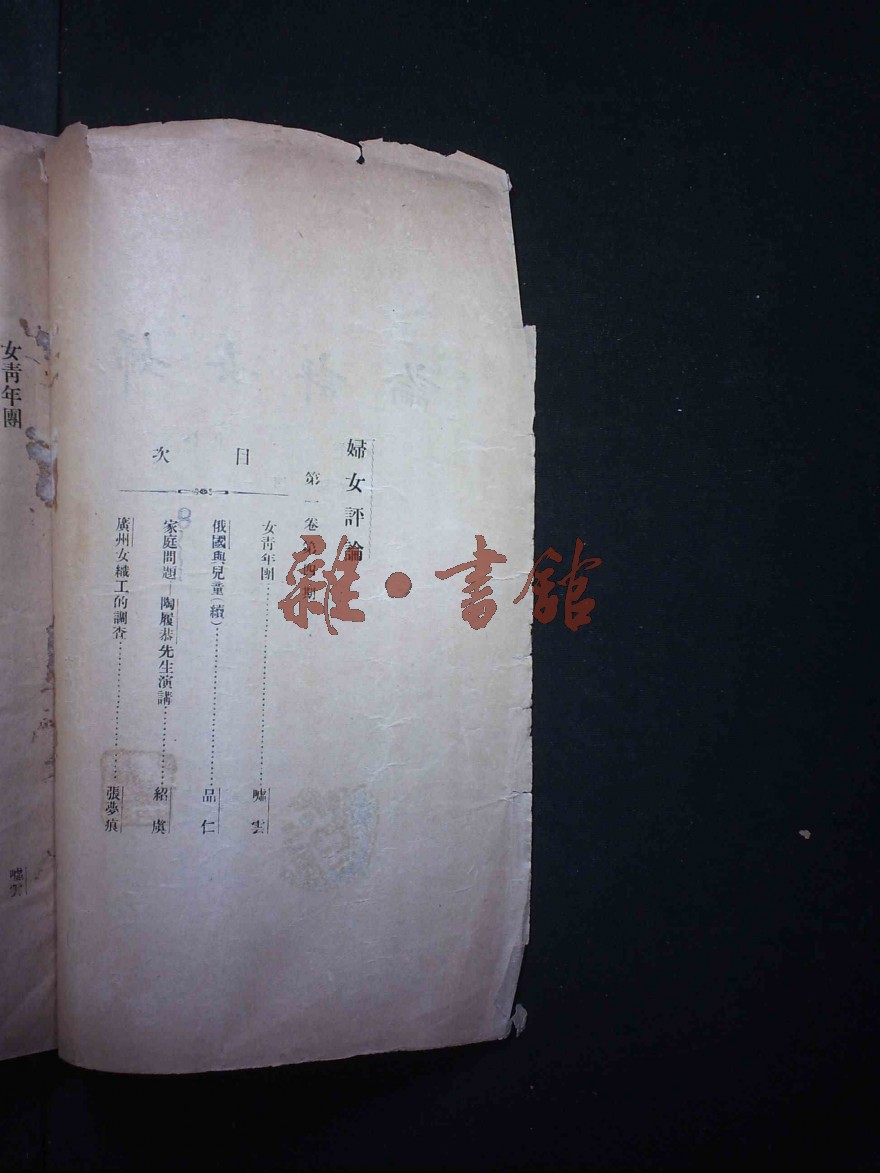 婦女評論
第一卷第四期
目次
女靑年團⋯⋯⋯⋯⋯⋯嘯雲
俄國與兒童(續)⋯⋯⋯⋯⋯⋯品仁
家庭問題—陶履恭先生演講⋯⋯⋯⋯⋯⋯紹虞
廣州女織工的調查⋯⋯⋯⋯⋯⋯張夢痕
女靑年團
嘯雲
雜·書館